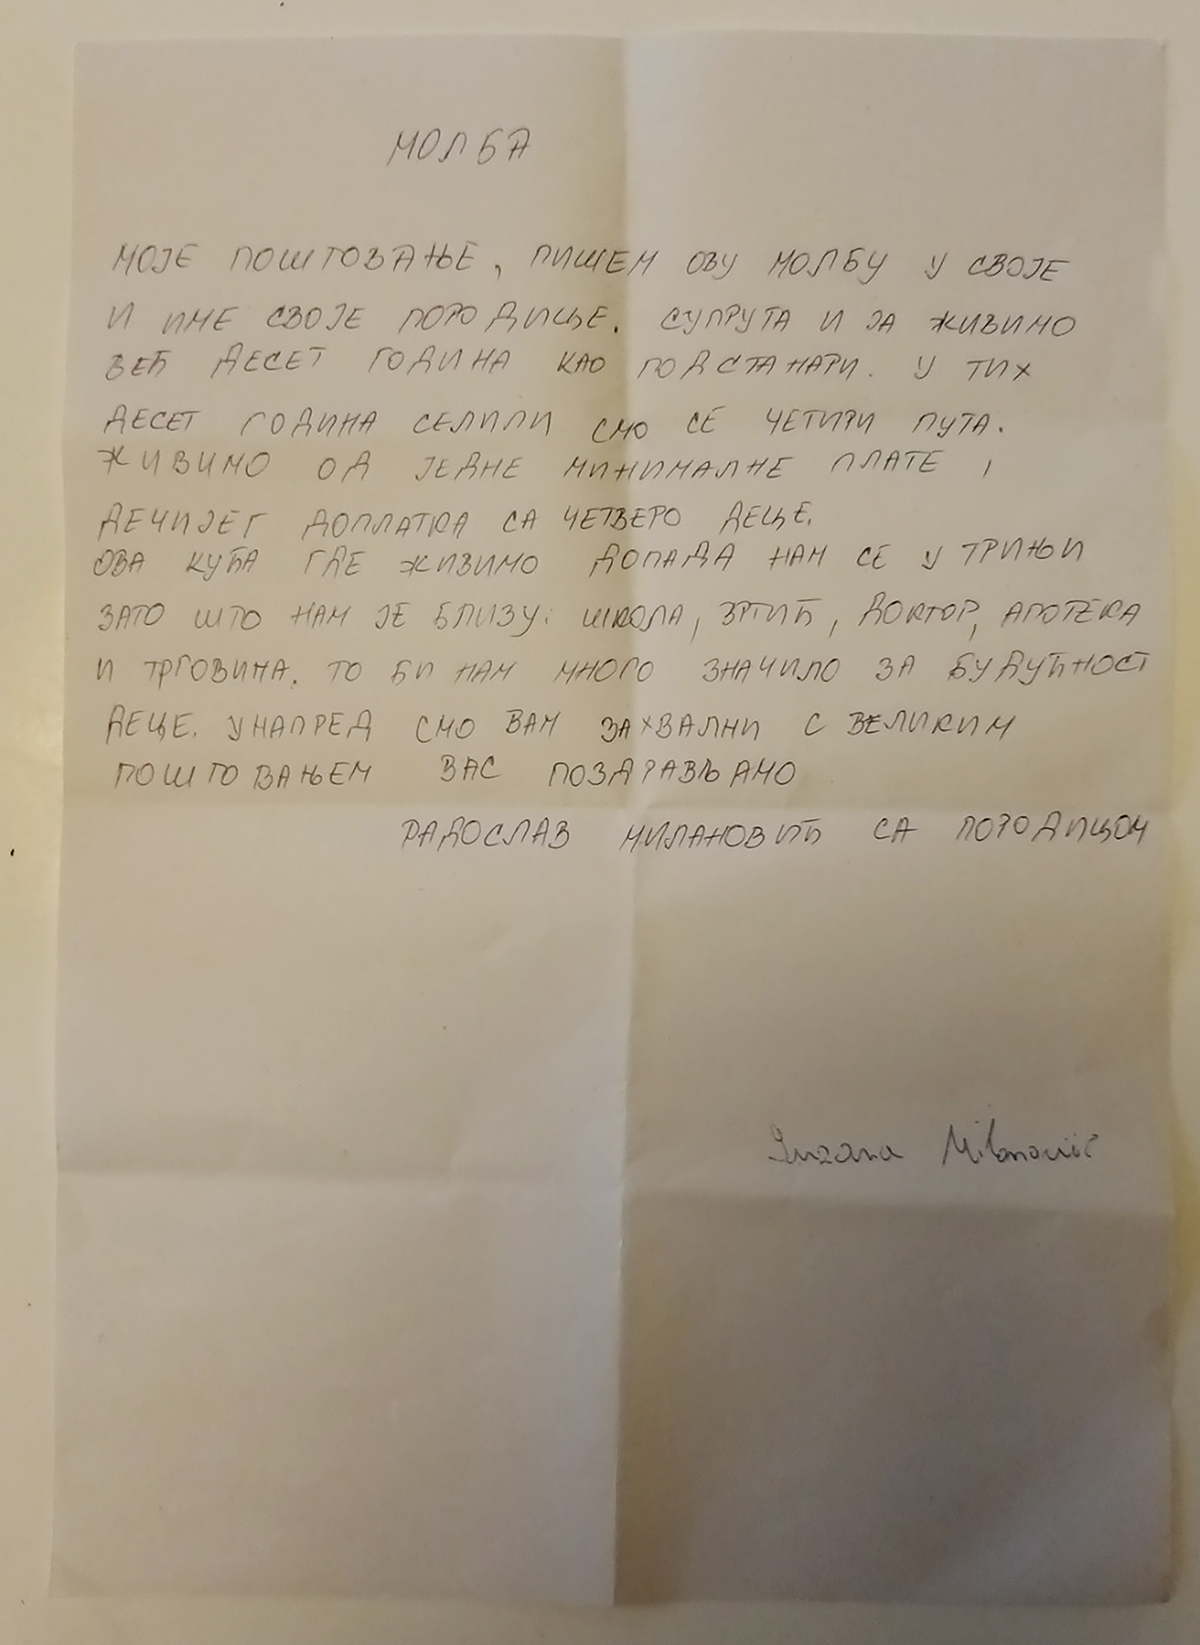 МОЛБА
МОЈЕ ПОШТОВАЊЕ, ПИШЕМ ОВУ МОЛБУ У СВОЈЕ
И ИМЕ СВОЈЕ ПОРОДИЦЕ. СУПРУГА И ЈА ЖИВИМО
ВЕЋ ДЕСЕТ ГОДИНА КАО ПОДСТАНАРИ. У ТИХ
ДЕСЕТ ГОДИНА СЕЛИЛИ СМО СЕ ЧЕТИРИ ПУТА.
ЖИВИМО ОД ЈЕДНЕ МИНИМАЛНЕ ПЛАТЕ ,
ДЕЧИЈЕГ ДОПЛАТКА СА ЧЕТВЕРО ДЕЦЕ.
ОВА КУЋА ГДЕ ЖИВИМО ДОПАДА НАМ СЕ У ТРЊИ
ЗАТО ШТО НАМ ЈЕ БЛИЗУ: ШКОЛА, ВРТИЋ, ДОКТОР, АПОТЕКА
И ТРГОВИНА. ТО БИ НАМ МНОГО ЗНАЧИЛО ЗА БУДУЋНОСТ
ДЕЦЕ. УНАПРЕД СМО ВАМ ЗАХВАЛНИ С ВЕЛИКИМ
ПОШТОВАЊЕМ ВАС ПОЗДРАВЉАМО
РАДОСЛАВ МИЛАНОВИЋ СА ПОРОДИЦОМ
Suzana Milanović